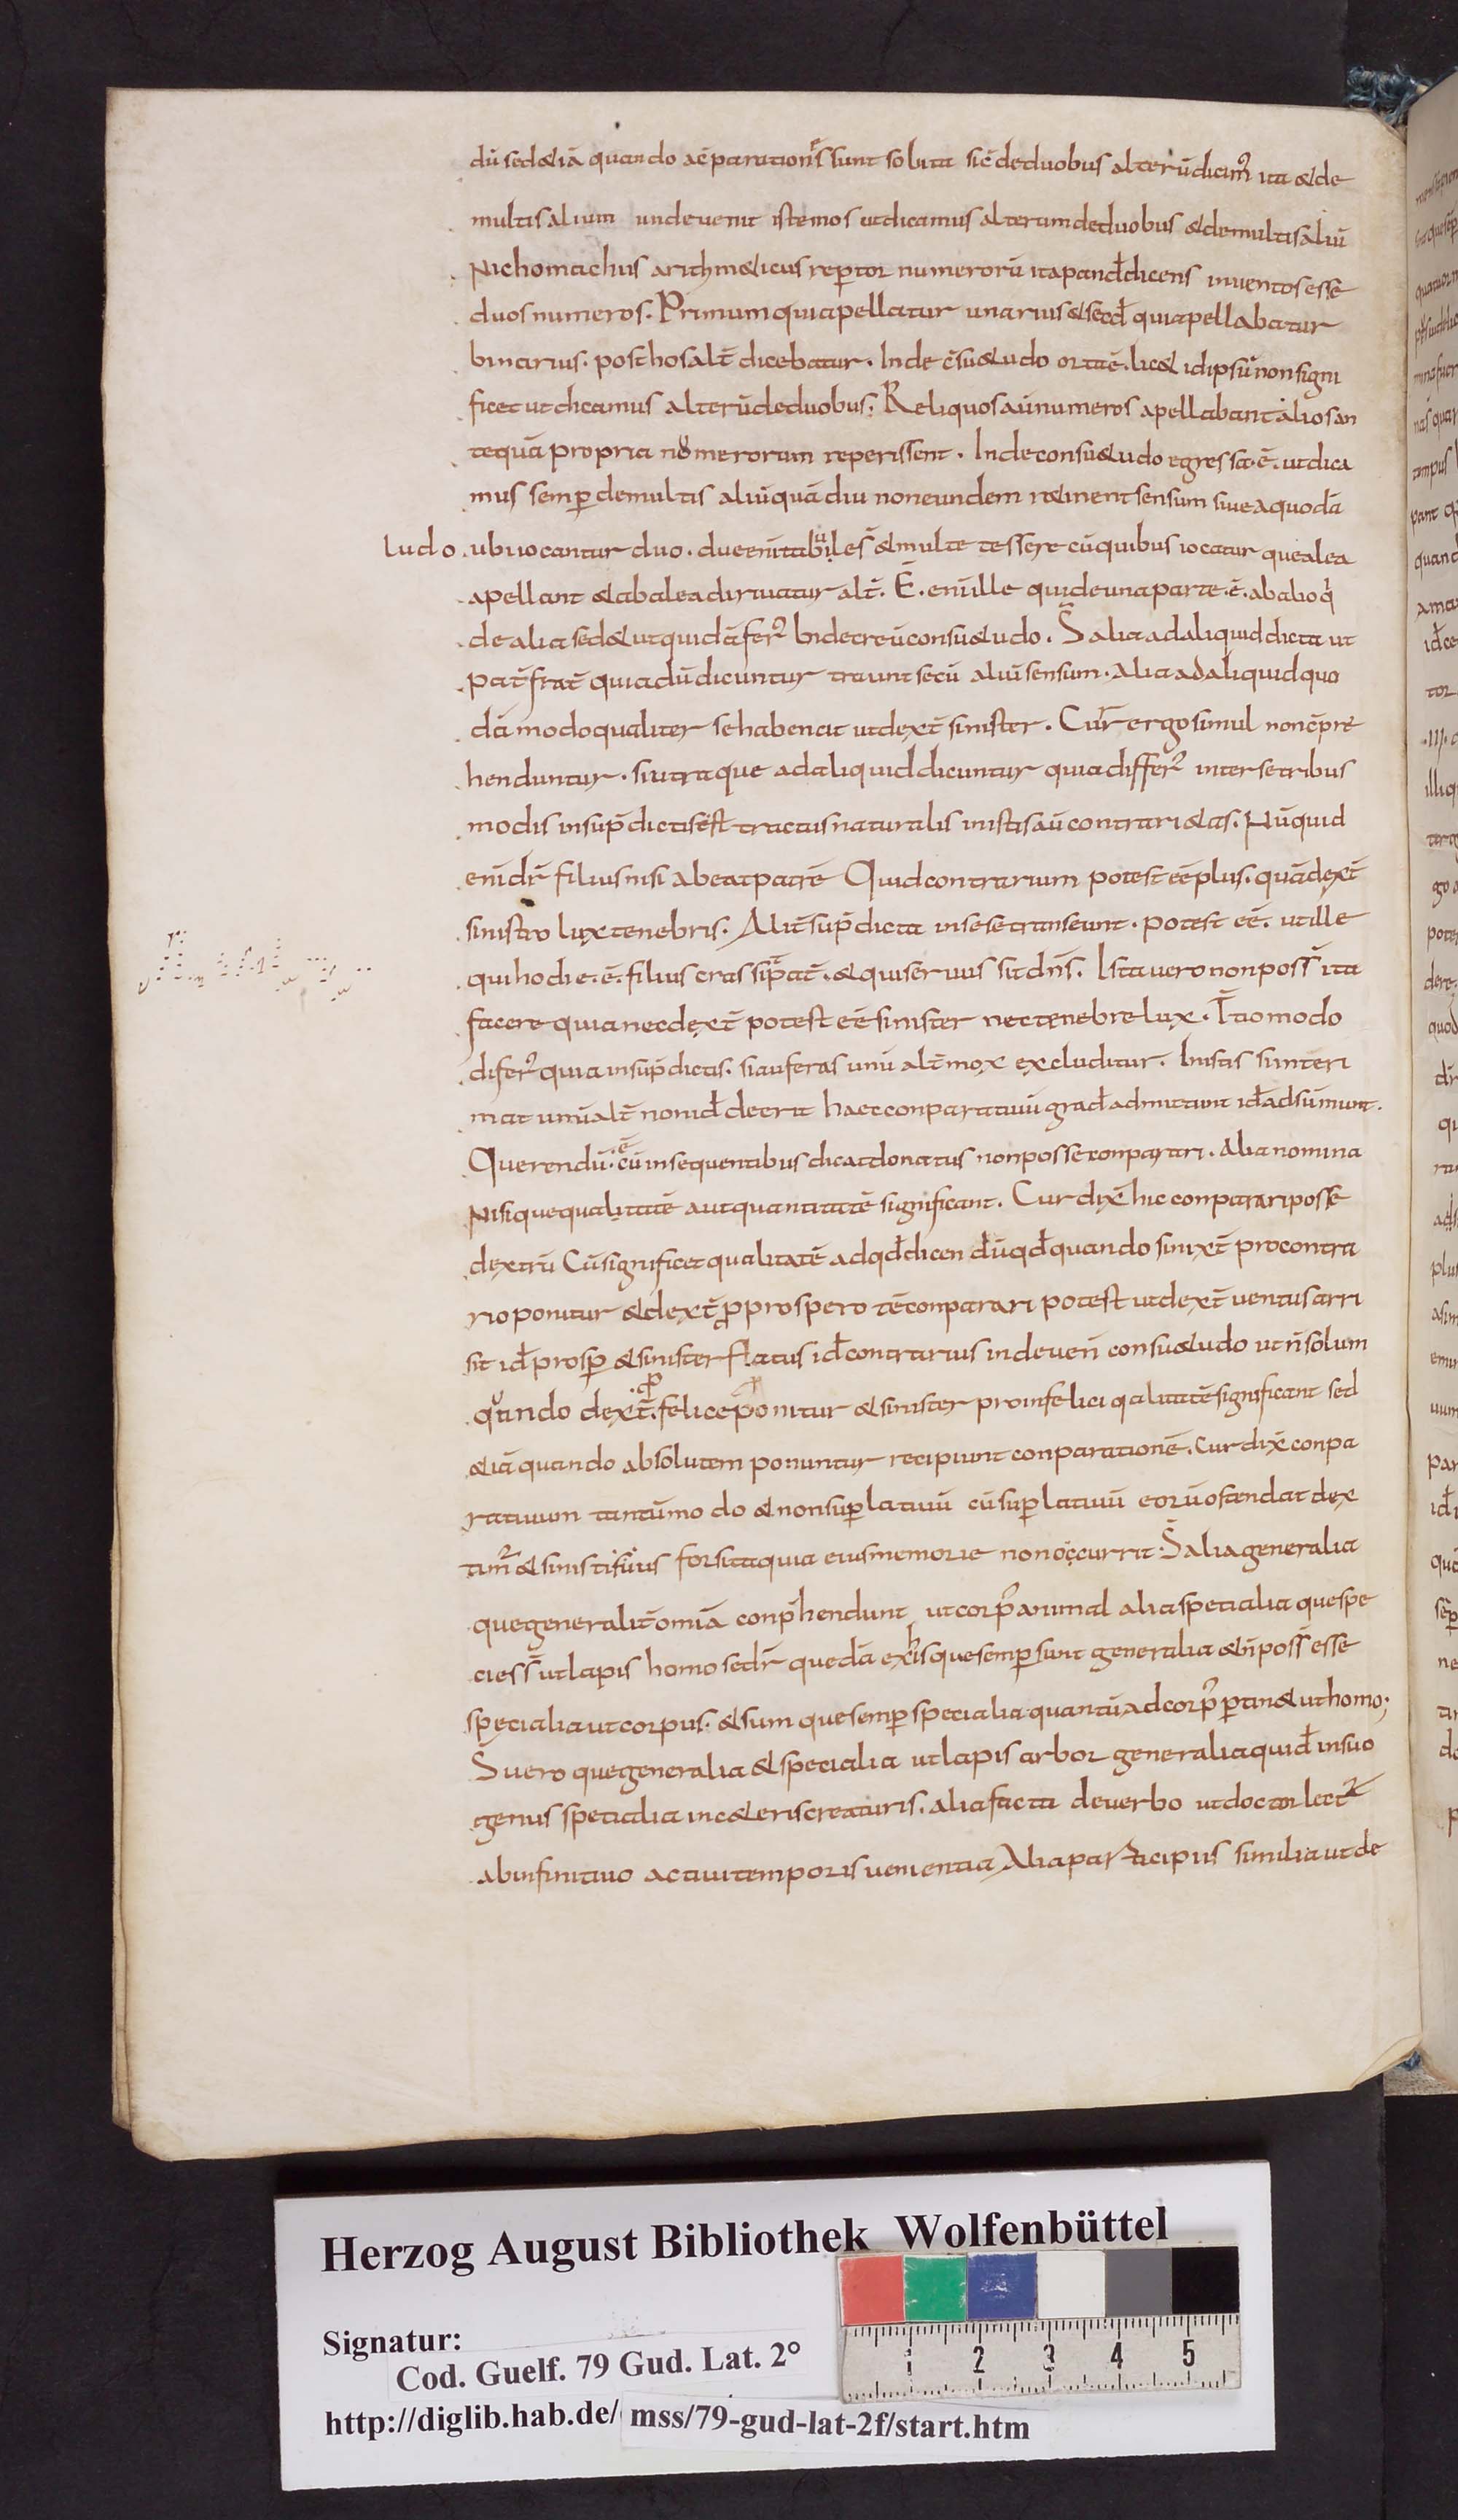 dū sed &iā quando ac̄parationēs sunt soluta sic̄ deduobus alterūdicim᷒ ita &de
multisalium undeuenit istemos utdicamus alterumdeduobus &demultisaliū
Nichomachus arithm&icus rep̄tor numerorū itapand̄dicens inuentosesse
duosnumeros. Primumquiapellatur unarius&secd̄ quiapellabatur
binarius. posthosalt̄ dicebatur. Inde c̄su&udo ortaē. lic& idipsū nonsigni
ficet utdicamus alterūdeduobus. Reliquosaūnumeros apellabantaliosan
tequā propria nomerorum reperissent. Indeconsu&udo egressa.ē. utdica
mus semp̄ demultis aliūquādiu noneundem r&inentsensum siueaquodā
ludo. ubiuocantur duo. dueenītabules &multe tessere cūquibus iocatur quealea
apellant &abaleadiriuatur alt̄. Ē. enīille quideunaparte.ē. abalioq̄
dealia sed&utquidāfer᷒ Indetreūconsu&udo. S̄ aliaadaliquiddicta ut
pat̄ frat̄ quiadūdicuntur traunt secū aliūsensum. Aliaadaliquidquo
dāmodoqualiter sehabenat utdext̄ sinister. Cur̄ergosimul nonc̄pre
henduntur. siutraque adaliquiddicuntur quiadiffer᷒ intersetribus
modis insup̄dictisēst tractusnaturalis inistisaūcontrari&as. Nūquid
enīdr̄ filiusnisi abeatpatrē Quidcontrarium potest eēplus. quādext̄
sinistro lux tenebris. Alit̄sup̄dicta insesetranseunt. potest eē. utille
quihodie.ē. filius cras sip̄at̄. &quiseruus sitdn̄s. Istaueronon poss̄ ita
facere quianecdext̄ potest eē sinister nectenebrelux. T̄tiomodo
difer᷒ quiainsup̄dictis. siauferas unū alt̄mox excluditur. Inistis sinteri
mat unūalt̄ nonid̄ deerit haecconparatiuū grad̄admittunt id̄adsūmunt.
Querendū.ē cūinsequentibusdicatdonatus nonposseconparari. Alianomina
Nisiquequalitatē autquantitatē significant. Curdix̄ hic conparariposse
dextrū Cūsignificetqualitatē adqd̄dicendūqd̄quando sinixt̄ procontra
rioponitur &dext̄ p̄prospero tēconparari potest utdext̄ uentusarri
sit id̄prosp̄ &sinisterflatus id̄contrarius indeueň consu&udo utn̄solum
quando dext̄. p̄felice ponitur &sinister proinfelici qalitatē significant sed
&iāquando absolutem ponuntur recipiunt conparationē. Curdix̄ conpa
ratiuum tantūmodo &nonsup̄latiuū cūsup̄latiuū eorūostendat dex
tim᷒ &sinistifūius forsitaquia eiusmemorie nonoccurrit. S̄ aliageneralia
quegeneralit̄omīa conp̄hendunt utcorp᷒animal aliaspecialia quespe
ciess̄ utlapis homo sedr̄ quedā exhis quesemp̄sunt generalia &n̄poss̄ esse
specialiautcorpus. &sum quesemp̄specialiaquantūadcorp᷒ p̄tin& uthomo;
S̄uero quegeneralia &specialia utlapis arbor generaliaquid̄ insuo
genus specialia inc&eriscreaturis. aliafacta deuerbo utdoctor lector
abinfinitiuo actiuitemporisuenientia Aliaparticipiis similiautde
Herzog August Bibliothek Wolfenbüttel
Signatur:
Cod. Guelf. 79 Gud. Lat. 2°
http://diglib.hab.de/ mss/79-gud-lat-2f/start.htm
1 2 3 4 5